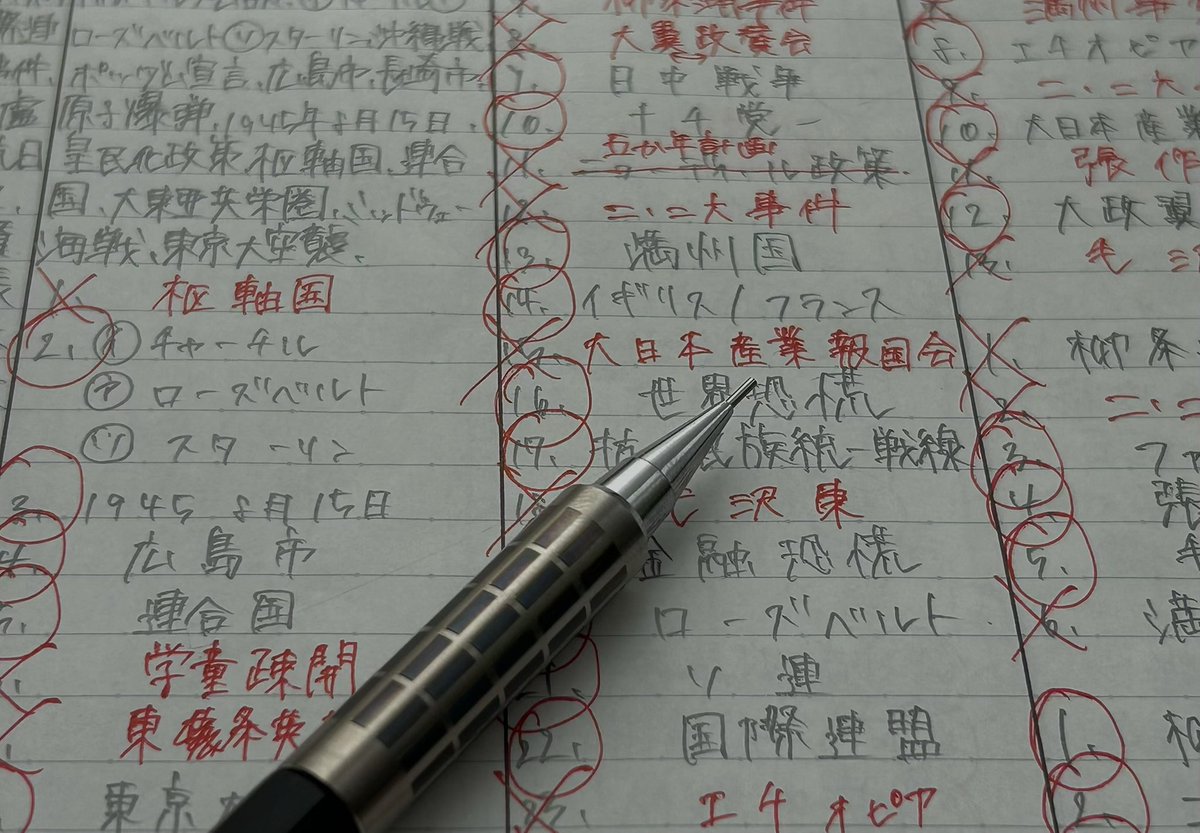 ローズベルト ㋞ スターリン 沖縄戦
件、ポツダム宣言、広島市、長崎市
原子爆弾、1945年8月15日、
皇民化政策 枢軸国、連合
国、大東亜共栄圏、ミッドウェー
海戦、東京大空襲、
1. 枢軸国
2. チャーチル
ローズベルト
㋞ スターリン
3. 1945 8月15日
広島市
連合国
学童疎開
東條英
東京大
大翼政賛会
9. 日中戦争
10. ナチ党
11. 五か年計画
政策
12. 二・二六事件
13. 満州国
14. イギリス/フランス
15. 大日本産業報国会
16. 世界恐慌
17. 抗 民族統一戦線
18. 毛沢東
金融恐慌
ローズベルト
ソ連
22. 国際連盟
23. エチオピア
満州事
8. エチオピア
9. 二・二六
10. 大日本産業
11. 張作
12. 大政翼
13. 毛沢
1. 柳条
2. 二・二
3. ファ
4. 張
5.
6. 満
1. 柳
2.